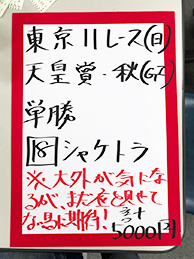 東京11レース(日)
天皇賞・秋(G1)
単勝
18 シャケトラ
※大外が気にな
るが、また夜を見せて
な馬に期待!
計
5000円